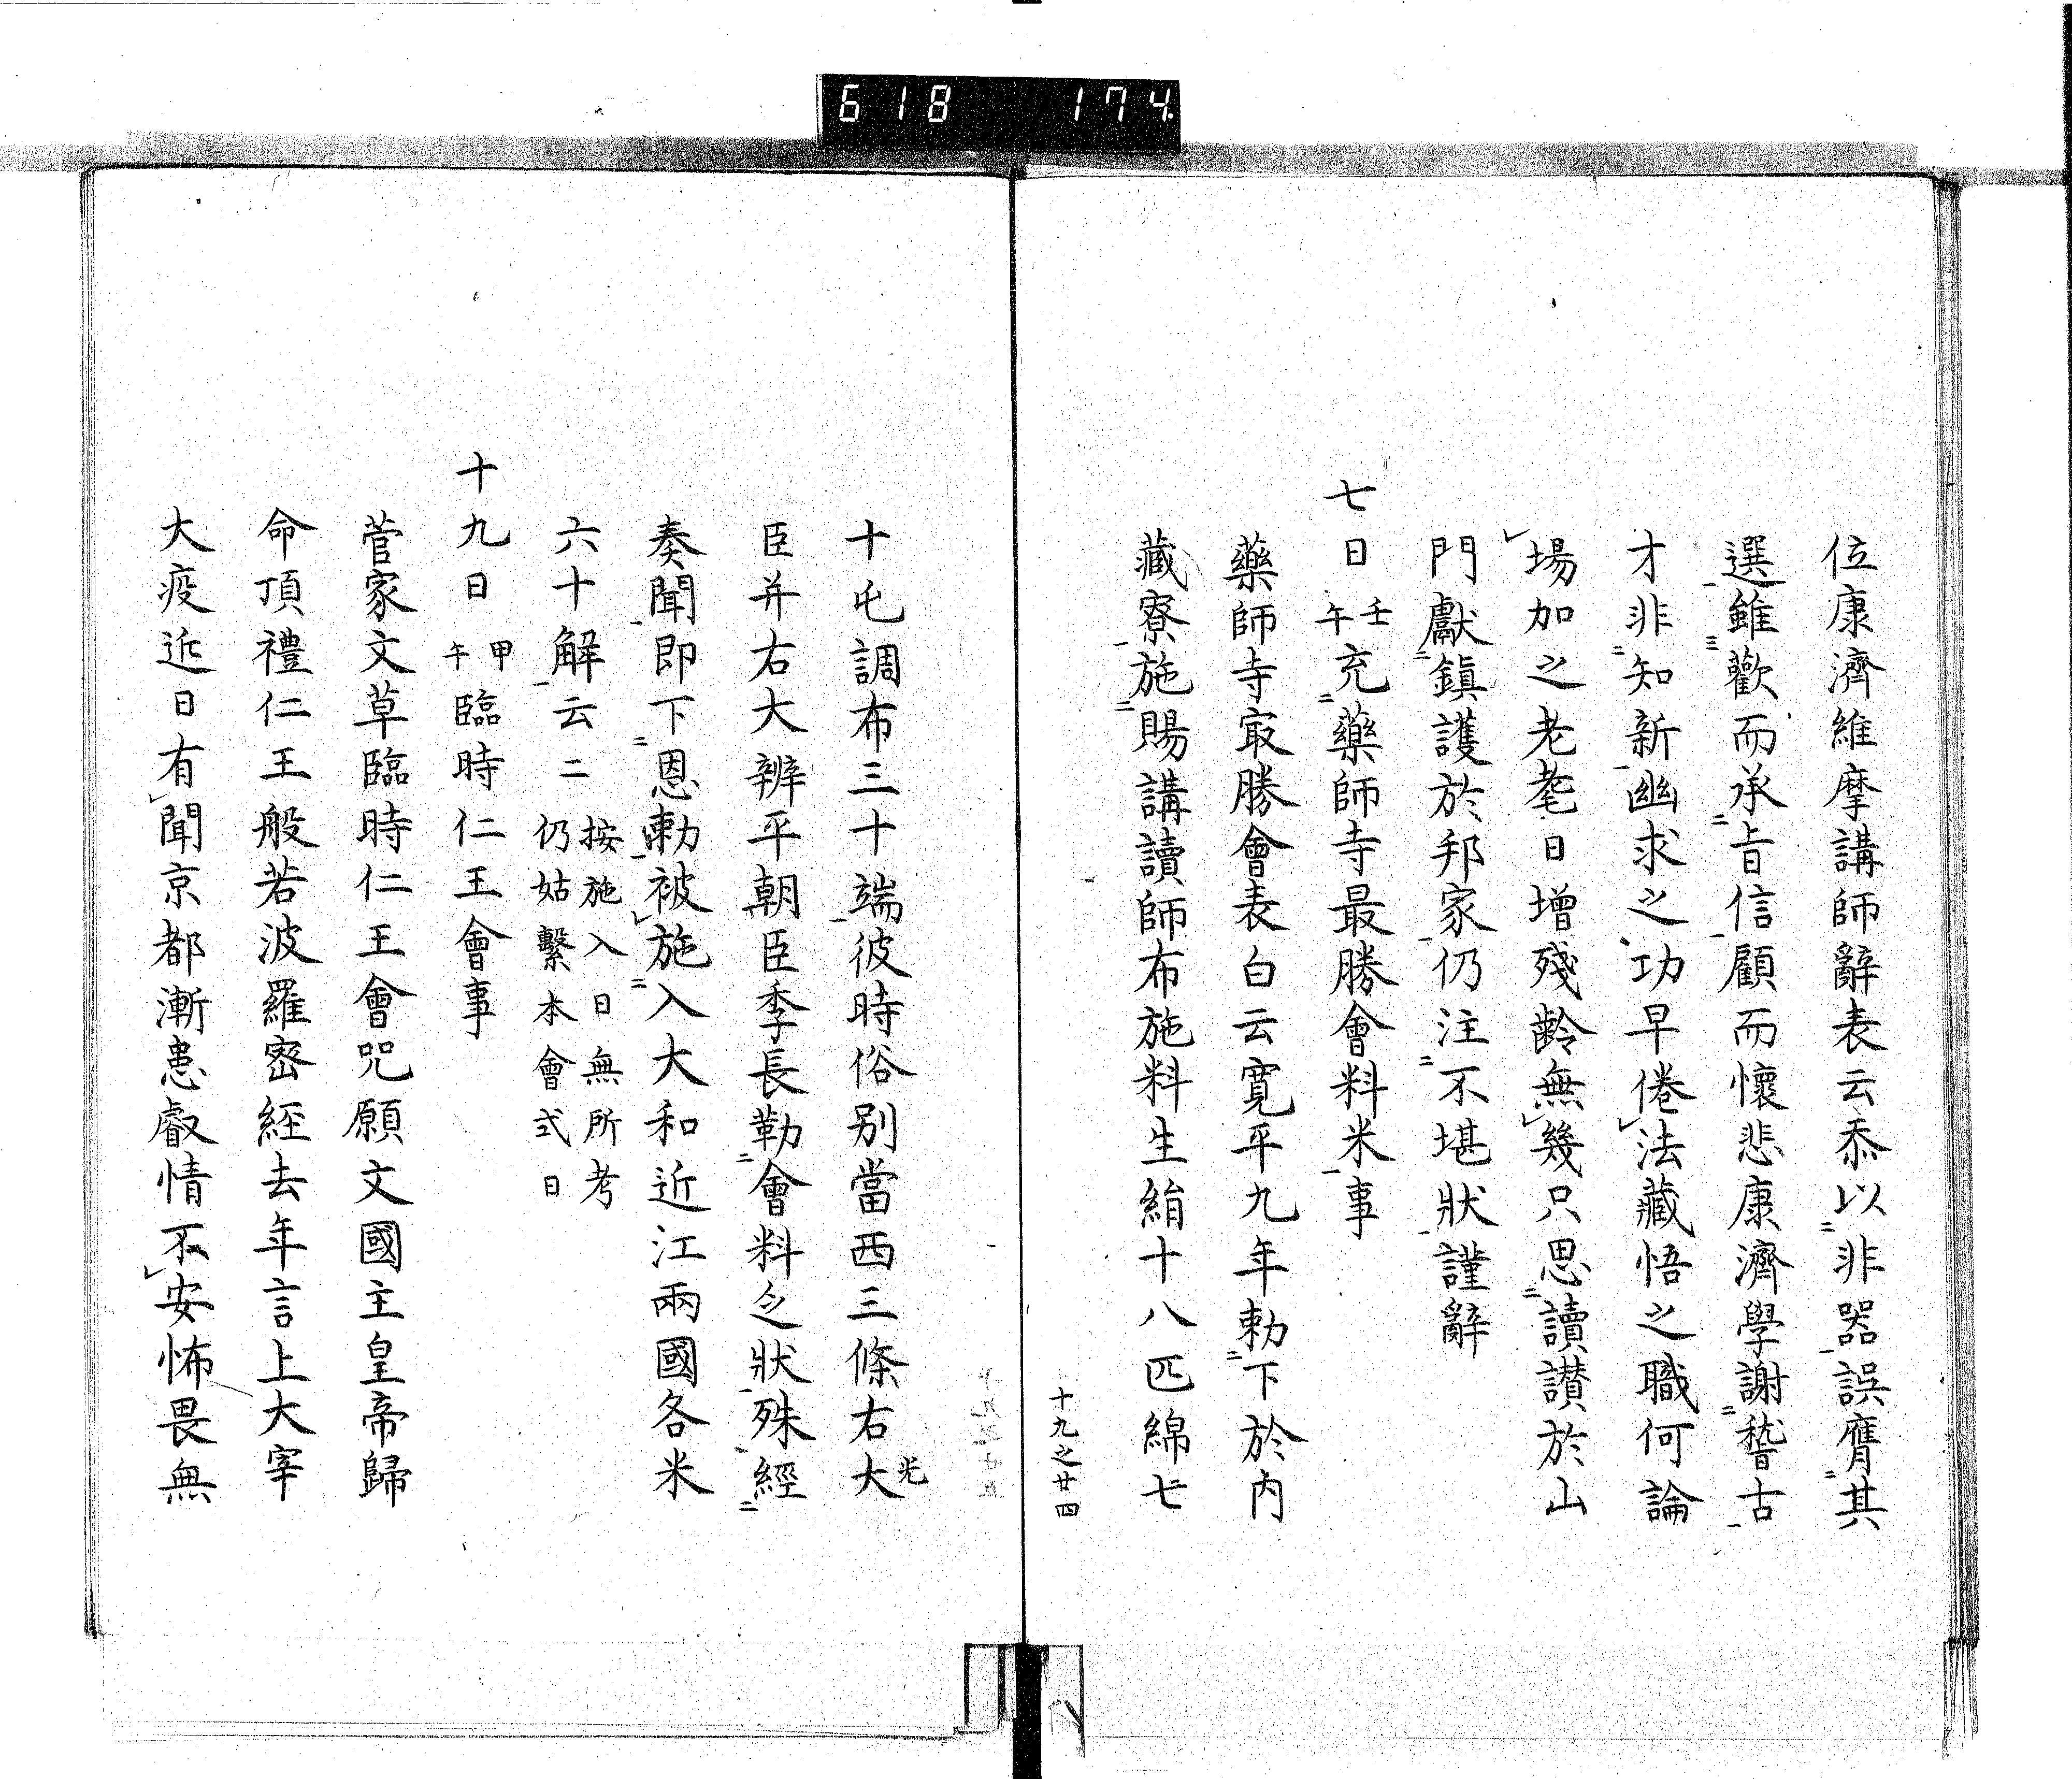 618 174
位康濟維摩講師辭表云忝以非器誤膺其
選雖歡而承旨信顧而懷悲康濟學謝稽古
才非知新幽求之功早倦法藏悟之職何論
場加之老耄日增殘齡無幾只思讀讃於山
門獻鎮護於邦家仍注不堪狀謹辭
七日壬午充藥師寺最勝會料米事
藥師寺㝡勝會表白云寛平九年勅下於内
藏寮施賜講讀師布施料生絹十八匹綿七
十九之廿四
十屯調布三十端彼時俗别當西三條右大
光
臣并右大辨平朝臣季長勒會料之狀殊經
奏聞即下恩勅被施入大和近江兩國各米
六十解云二
按施入日無所考
仍姑繫本會式日
十九日甲午臨時仁王會事
菅家文草臨時仁王會咒願文國主皇帝歸
命頂禮仁王般若波羅密經去年言上大宰
大疫近日有聞京都漸患叡情不安怖畏無